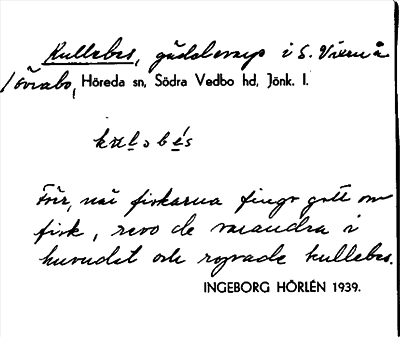 Kullebes, gäddvarp i S. Vixen å
Lövabo, Höreda sn, Södra Vedbo hd, Jönk. l.
Förr, när fiskarna fingo gott om
fisk, revo de varandra i
huvudet och ropade kullebes.
INGEBORG HÖRLÉN 1939.